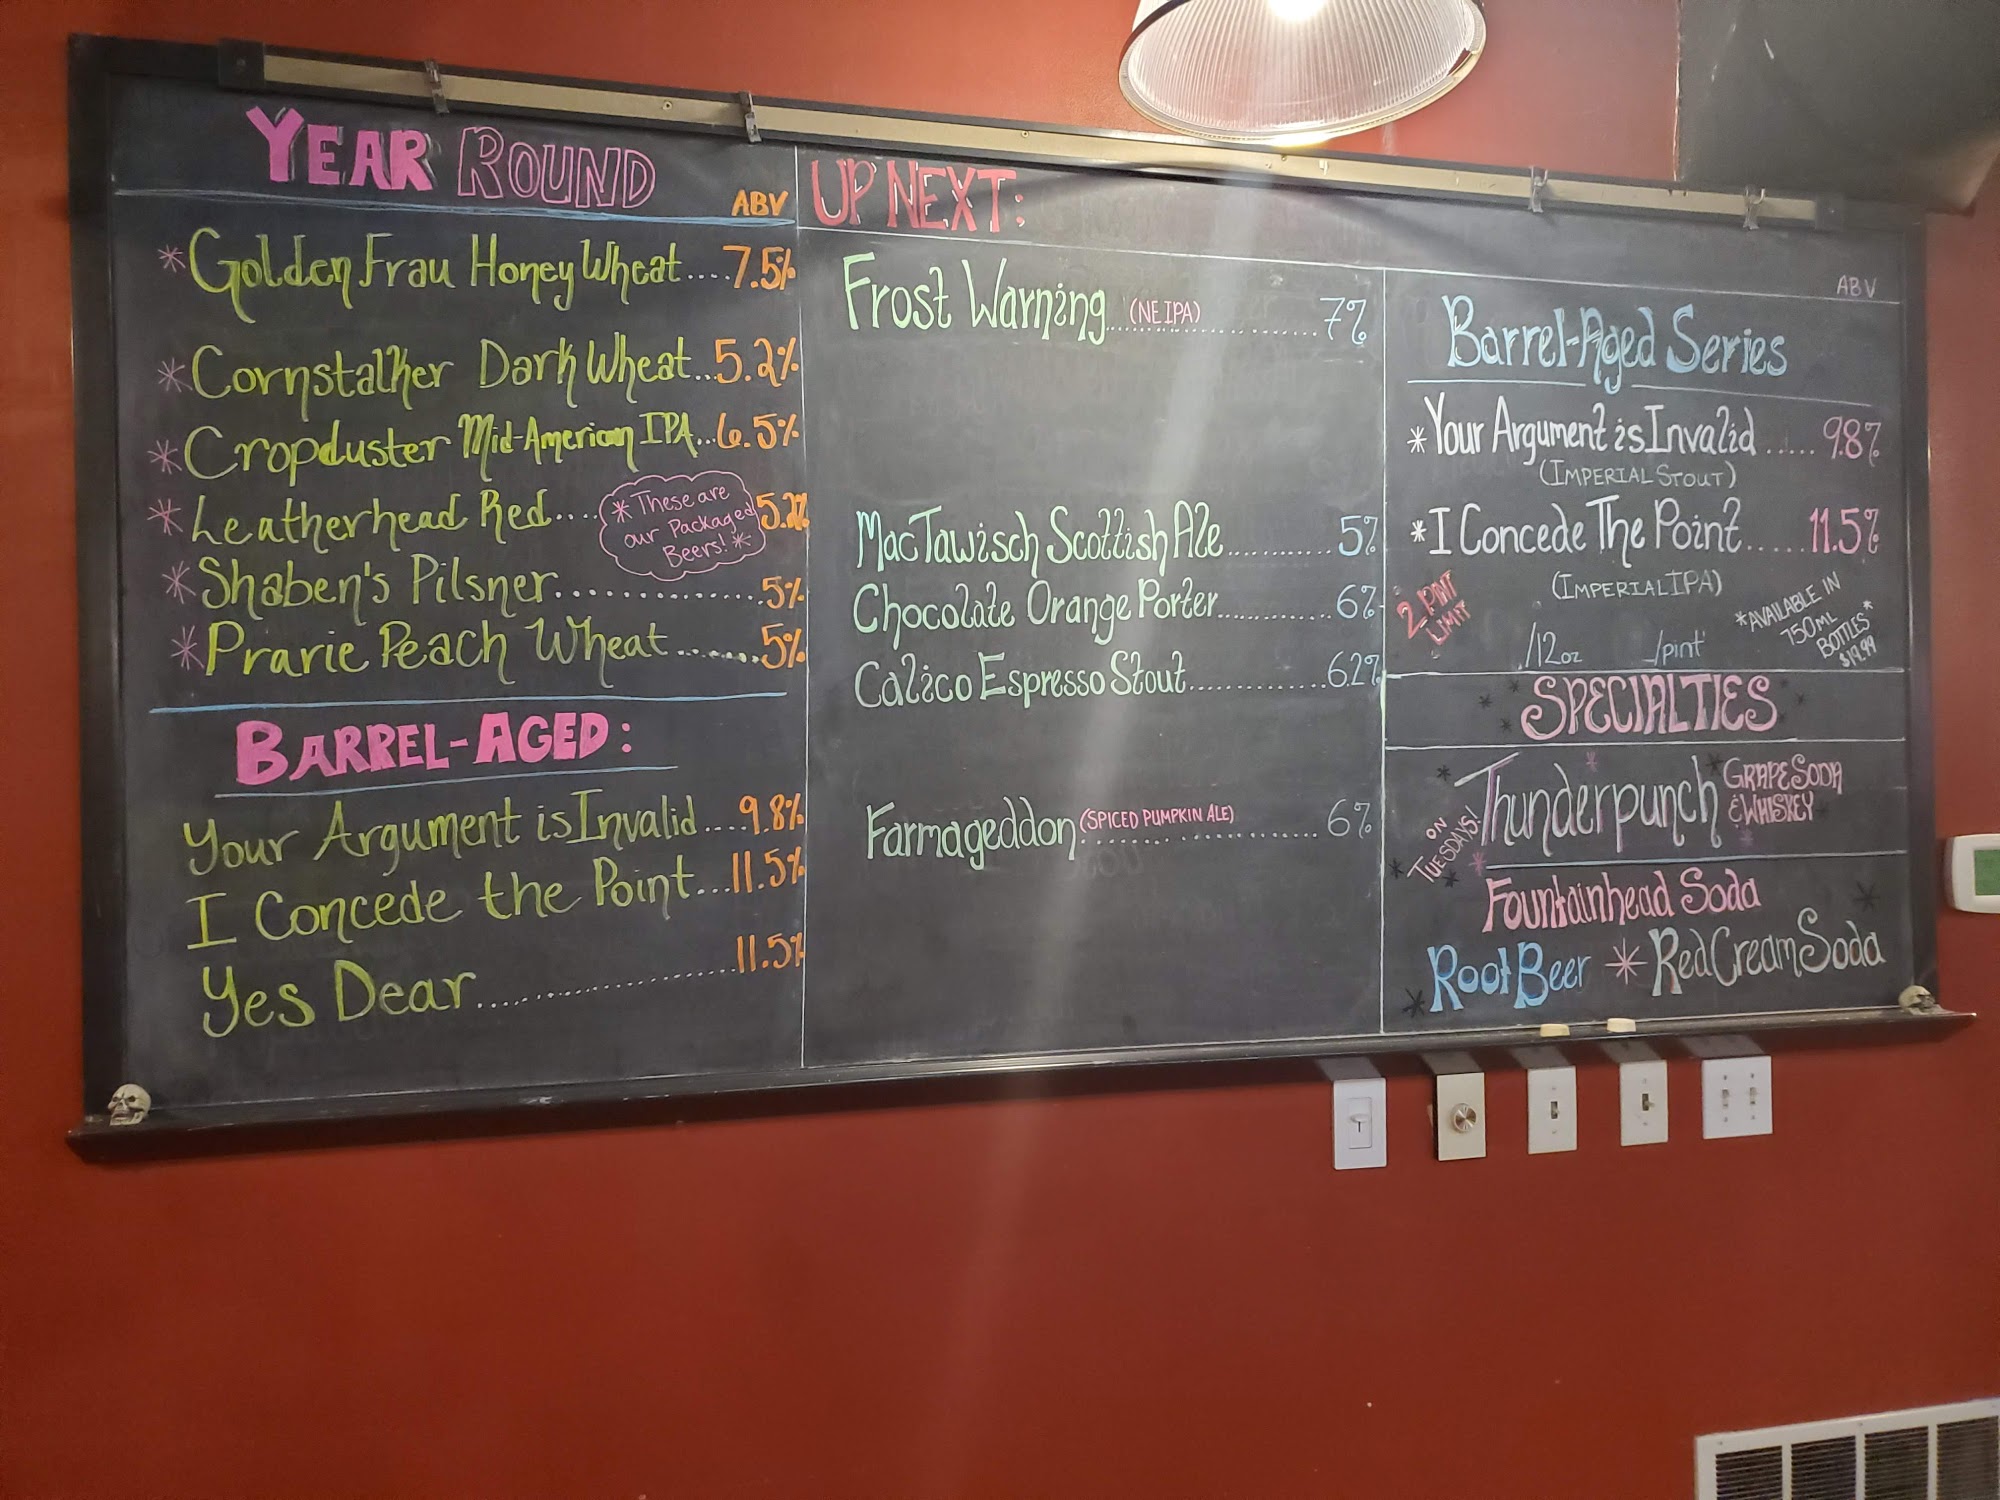 YEAR ROUND
ABV
*Golden Frau Honey Wheat....7.5%
*Cornstalker Dark Wheat...5.2%
*Cropduster Mid-American IPA...6.5%
*Leatherhead Red....
*These are
our Packaged
Beers!*
*Shaben's Pilsner..............5%
*Prarie Peach Wheat........5%
BARREL-AGED:
Your Argument is Invalid....9.8%
I Concede the Point...11.5%
Yes Dear....................11.5%
UP NEXT:
Frost Warning (NE IPA)....................7%
MacTawisch Scottish Ale...........5%
Chocolate Orange Porter...........6%
Calico Espresso Stout..............6.2%
Farmageddon (SPICED PUMPKIN ALE)..................6%
ABV
Barrel-Aged Series
*Your Argument is Invalid.....9.8%
(IMPERIAL STOUT)
*I Concede The Point......11.5%
(IMPERIAL IPA)
2 PINT
LIMIT
/12oz /pint
*AVAILABLE IN
750ML
BOTTLES*
$19.99
SPECIALTIES
ON
TUESDAYS!
Thunderpunch
GRAPE SODA
& WHISKEY
Fountainhead Soda
Root Beer * Red Cream Soda